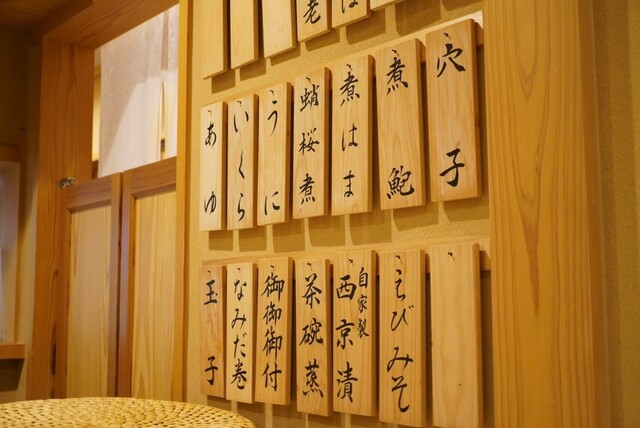 老
は
穴子
煮鮑
煮はま
蛸桜煮
うに
いくら
あゆ
えびみそ
自家製
西京漬
茶碗蒸
御御御付
なみだ巻
玉子